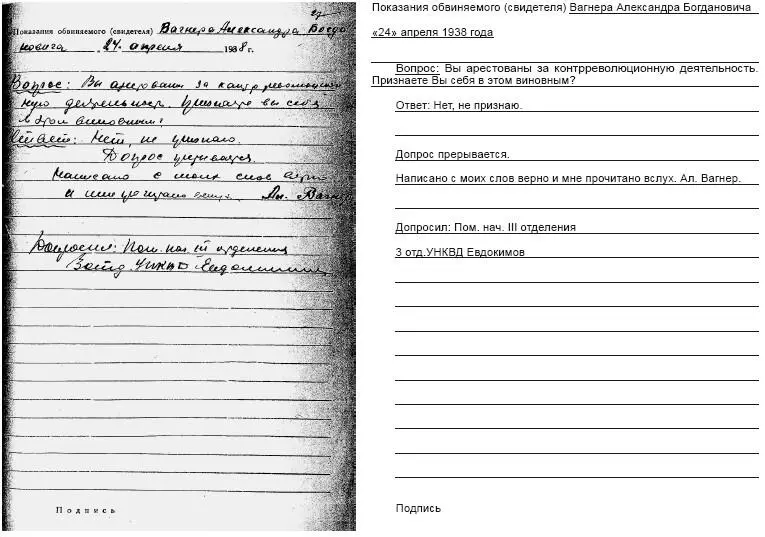 27
Показания обвиняемого (свидетеля) Вагнера Александра Богда
новича „24„ апреля 1938 г.
Вопрос: Вы арестованы за контрреволюцион
ную деятельность. Признаете вы себя
в этом виновным?
Ответ: Нет, не признаю.
Допрос прерывается.
Написано с моих слов верно
и мне прочитано вслух. Ал. Вагнер
Допросил: Пом. нач. III отделения
3 отд. УНКВД Евдокимов
Подпись
Показания обвиняемого (свидетеля) Вагнера Александра Богдановича
«24» апреля 1938 года
Вопрос: Вы арестованы за контрреволюционную деятельность.
Признаете Вы себя в этом виновным?
Ответ: Нет, не признаю.
Допрос прерывается.
Написано с моих слов верно и мне прочитано вслух. Ал. Вагнер.
Допросил: Пом. нач. III отделения
3 отд.УНКВД Евдокимов
Подпись